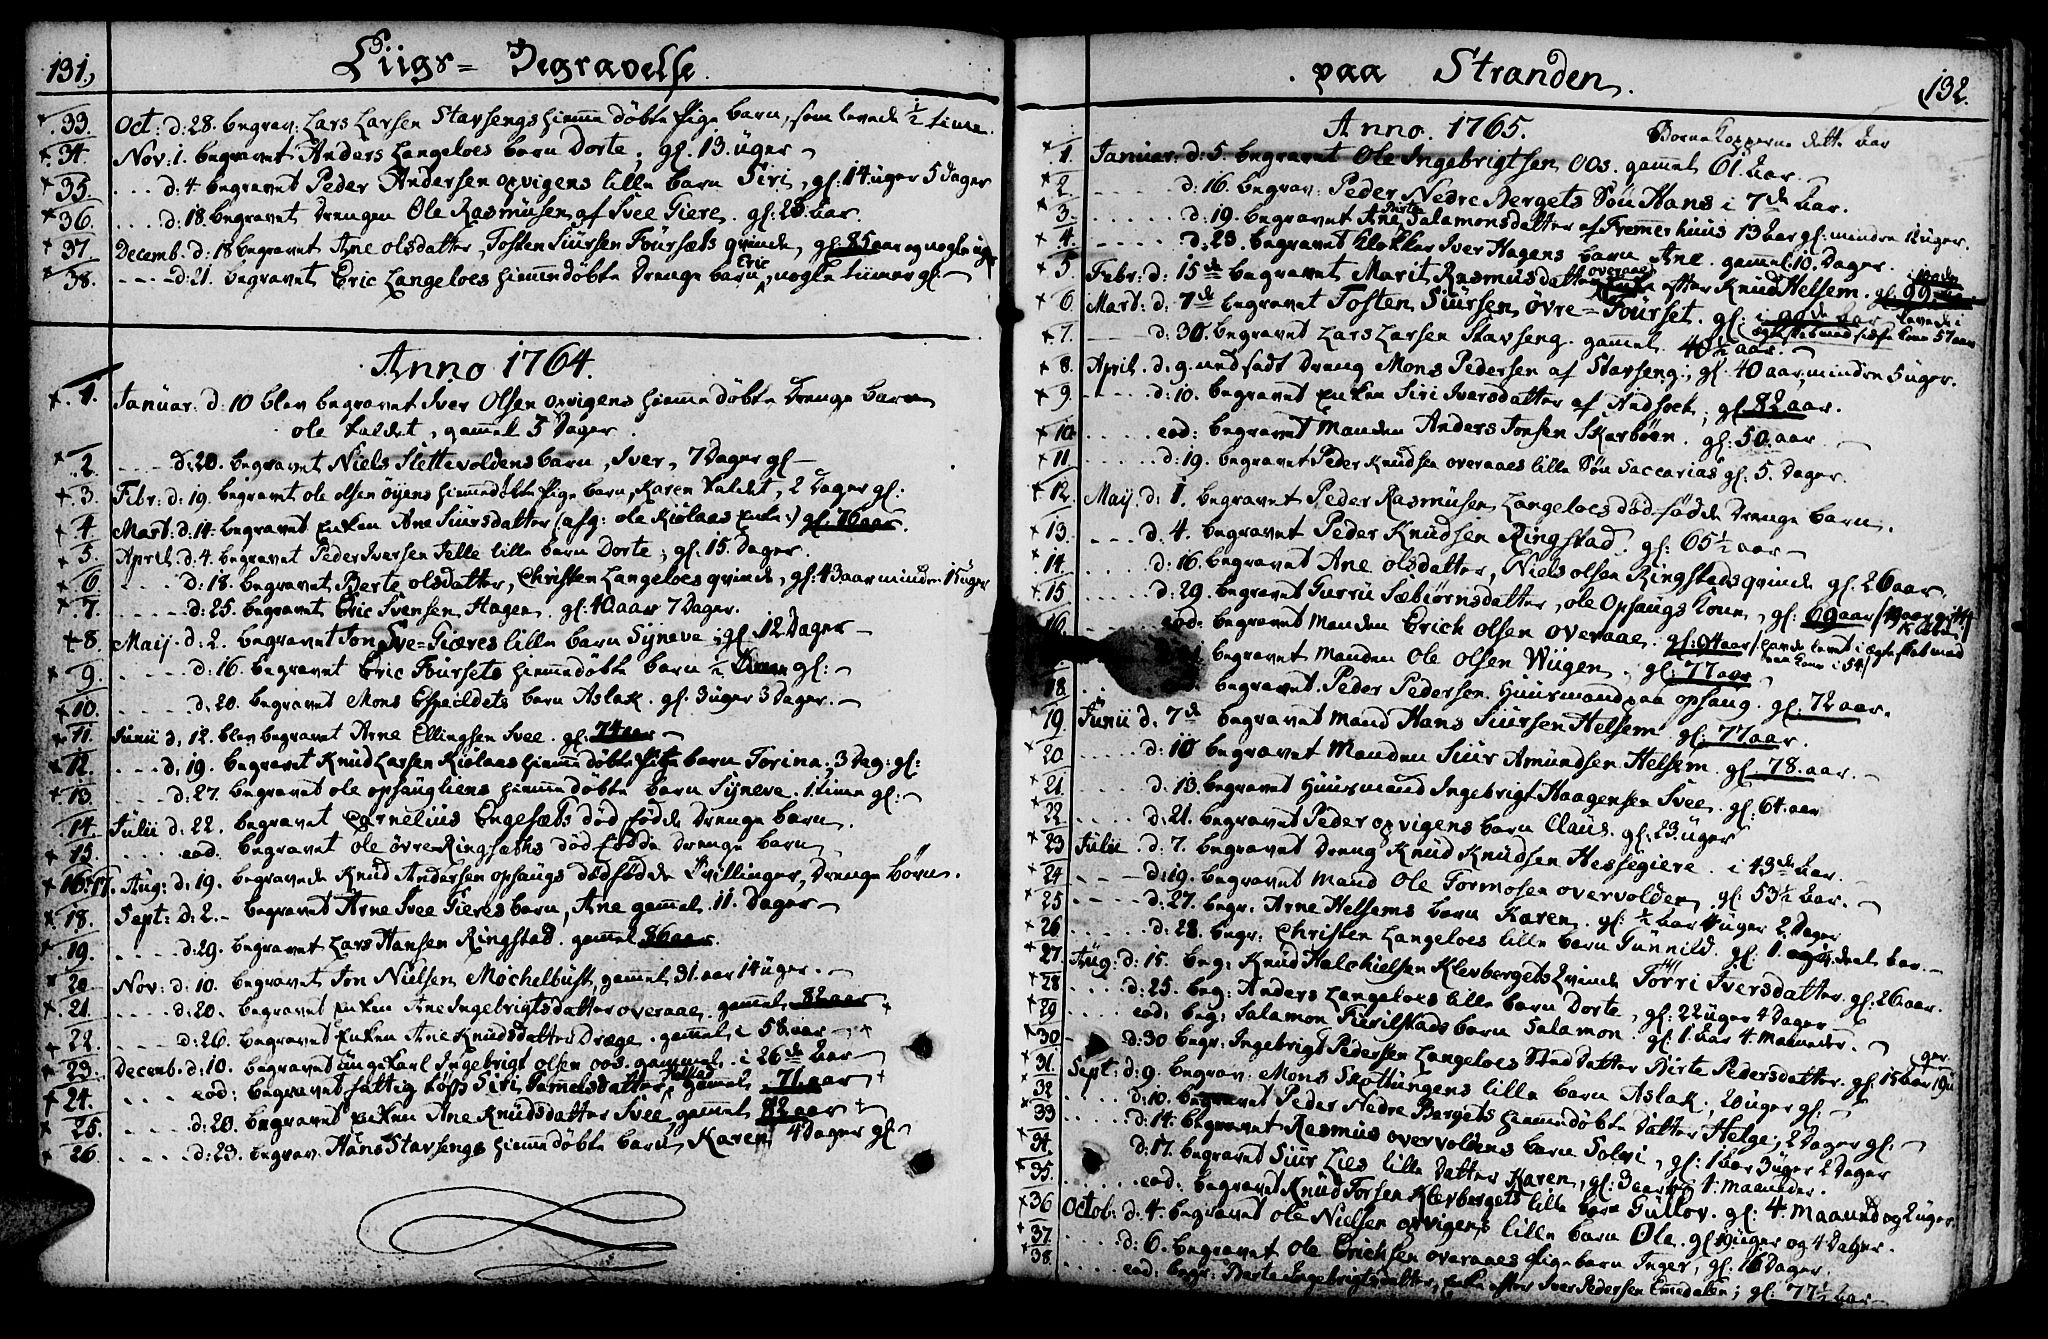 131.
Liigs-Begravelse
33. Oct: d: 28. begrav: Lars Larsen Stavsengs hiemmedöbte Pige barn, som levede ½ time.
34. Nov. 1. begravet Anders Langeloes barn Dorte, gl. 13. uger
35. d: 4 begravet Peder Andersen opvigens lille barn Siri, gl: 14 uger 5 Dager
36. d. 18. begravet Drengen Ole Rasmusen af Svee Giere. gl: 28. aar.
37 Decemb. d: 18 begravet Ane olsdatter, Tosten Siursen Fürsæts qvinde, gl: 85 aar og nogle uger
38. d: 21. begravet Eric Langeloes hiemmedöbte Drenge barn Eric, nogle timer gl:
Anno 1764.
1. Januar. d: 10 blev begravet Iver Olsen opvigens hiemmedöbte Drenge barn
ole kaldet, gammel 3 Dager.
2. d: 20. begravet Niels Slettevoldens barn, Iver, 7 Dager gl
3. Febr: d: 19. begravet ole olsen öyens hiemmedöbte Pige barn, Karen kaldet, 2 Dager gl:
4 Mart: d: 14. begravet enken Ane Siursdatter (afg: ole Kiölaas enke:) gl. 76 aar.
5. April. d. 4. begravet Peder Iversen Telle lille barn Dorte; gl. 15. Dager.
6 d: 18. begravet Berte olsdatter, Christen Langeloes qvinde, gl: 43 aar mindre 15 uger
7. d: 25. begravet Eric Svensen Hagen. gl: 40. aar 7 Dager.
8. Maij. d. 2. begravet Jon Svee-Gieres lille barn Syneve; gl 12 Dager
9. d: 16. begravet Eric Foursets hiemmedöbte barn ½ time gl:
10. d: 20. begravet Mons Espeildets barn Aslak. gl: 3 uger 3 Dager.
11. Junii d, 12. blev begravet Arne Ellingsen Svee. gl: 74 aar
12. d: 19. begravet Knud Larsen Kiölaas hiemmedöbte Pige barn Torina, 3 Dag: gl:
13. d: 27. begravet ole opsangliens hiemmedöbte barn Syneve. 1. time gl:
14 Julii d: 22. begravet Cornelius Engesæts död födde Drenge barn.
15. eod. begravet ole övre Ringstads död födde Drenge barn
16. 17. Aug: d: 19. begravede Knud Andersen opsangs dödfödde Tvillinger, Drenge börn.
18. Sept: d: 2. begravet Arne Svee Gieres barn, Ane gammel 11. Dager
19. d: 29. begravet Lars Hansen Ringstad. gammel 86 aar.
20 Nov: d: 10. begravet Jon Nielsen Mochelbust, gammel 31. aar 14 uger.
21. d: 20. begravet enken Ane Ingebrigtsdatter overaae. gammel 82 aar
22. d: 26. begravet Enken Ane Knudsdatter Dræge. gammel i 58. aar
23. Decemb. d: 10. begravet ungekarl Ingebrigt olsen oos. gammel. i 26de aar
24. eod: begravet fattig Siri datter, gammel 71 aar
25. d: 20. begravet enken Ane Knudsdatter Svee, gammel 82 aar
26. d: 23. begrav. Hans Stavsengs hiemmedöbte barn Karen 4 Dager gl:
paa Stranden.
132.
Anno. 1765.
Börnekopperne dette aar
1. Januar. d: 5. begravet Ole Ingebrigtsen Oos. gammel 61. aar.
2 d: 16. begrav: Peder Nedre Bergets Sön Hans i 7de aar.
3. d. 19. begravet Ane Birte Salamonsdatter af Fremmerhuus 13 aar gl: mindre 12 uger.
4. d. 23. begravet Klokker Iver Hagens barn Ane. gammel. 10. Dager.
5 Febr: d: 15de begravet Marit Rasmusdatter overaae Enke efter Knud Helsem. gl 99 aar
6 Mart: d: 7de begravet Tosten Siursen övre-Fourset. gl: levede i
7. d: 30. begravet Lars Larsen Stavseng. gammel. 40½ aar. egteskab med sidste kone 57 aar
8. April. d. 9. nedsadt Dreng Mons Pedersen af Stavseng, gl. 40 aar, mindre 5 uger.
9. d: 10. begravet enken Siri Iversdatter af Andsock, gl 82 aar.
10 eod: begravet Manden Anders Jonsen Skarböen. gl: 50. aar
11 d: 19. begravet Peder Knudsen overaaes lille Sön Saccarias gl. 5. Dager.
12. Maij. d: 1. begravet Peder Rasmusen Langeloes död födde Drenge barn.
13. d. 4. begravet Peder Knudsen Ringstad. gl: 65½ aar
14. d: 16. begravet Ane olsdatter, Niels olsen Ringstads qvinde gl. 26 aar.
15 d: 29. begravet Gurru Sæbiörnsdatter, ole Opsangs kone, gl: 69 aar
16. eod: begravet Manden Erich olsen overaae. gl: 94 aar
begravet Manden Ole olsen Wiigen, gl: 77 aar
18 begravet Peder Pedersen. Huusmand paa opsang. gl: 72 aar.
19. Junii d. 7de begravet Mand Hans Siursen Helsem gl: 77 aar.
20. d: 10 begravet Manden Siur Amundsen Helsem. gl. 78. aar.
21. d: 13. begravet Huusmand Ingebrigt Haagensen Svee. gl: 64. aar
22. d: 21. begravet Peder opvigens barn Claus. gl: 23 uger
23 Julii d. 7. begravet Dreng Knud Knudsen Hessegiere. i 43de aar.
24 d: 19. begravet Mand Ole Tormosen overvolden gl: 53½ aar.
25 d: 27. begr: Arne Helsems barn Karen. gl: ½ aar 4 uger 2 Dager
26 d: 28. begr: Christen Langeloes lille barn Gunnild. gl: 1
27. Aug: d: 15. beg: Knud Halchielsen Klevbergets Qvinde Torri Iversdatter. gl: 26 aar.
28 d: 25. beg: Anders Langeloes lille barn Dorte, gl: 22 uger 4 Dager
29. eod: beg: Salamon Fierilstads barn Salamon. gl: 1. aar 4. Maaneder.
30 d: 30 begr: Ingebrigt Pedersen Langeloes Sted Datter Birte Pedersdatter. gl: 15 aar 19 uger.
31. Sept: d: 9. begrav: Mons Skottungens lille barn Aslak, 20 uger gl:
32 d: 10. begravet Peder Nedre Bergets hiemmedöbte Datter Helge, 2 Dager gl:
33 d: 14. begravet Rasmus overvoldens barn Solvi, gl: 1 aar 3 uger 2 Dager
34. d: 17. begravet Siur Lies lille Datter Karen, gl: 3 aar og 1. Maaneder.
35. eod. begravet Knud Torsen Klevbergets lille barn Gullov. gl: 4. Maaned og 2 uger
36 Octob: d: 4. begravet Ole Nielsen opvigens lille barn Ole. gl 19 uger og 4 Dager.
37. d: 6. begravet Ole Erichsen overaaes Pige barn Inger, gl: 16 Dager.
38. eod: begr: Berte Ingebrigtsdatter, enke efter Iver Pedersen Emedalen; gl: 77½ aar